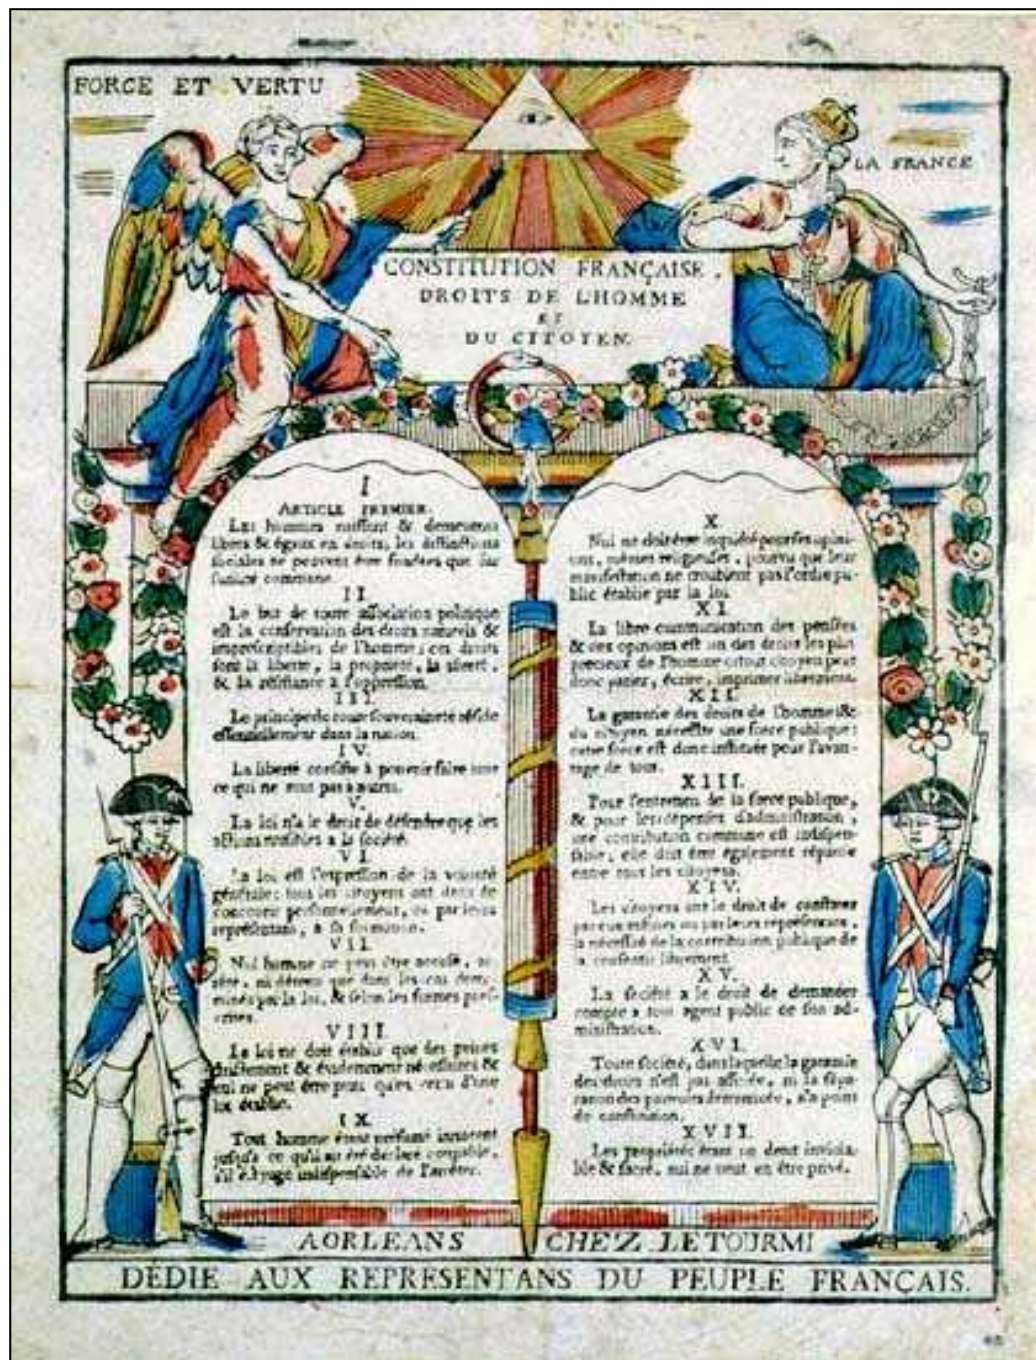 FORCE ET VERTU
LA FRANCE
CONSTITUTION FRANÇAISE,
DROITS DE L'HOMME
ET
DU CITOYEN.
I
ARTICLE PREMIER.
Les hommes naiſſent & demeurent
libres & égaux en droits, les diſtinctions
ſociales ne peuvent être fondées que ſur
l'utilité commune.
II.
Le but de toute aſſociation politique
eſt la conſervation des droits naturels &
impreſcriptibles de l'homme; ces droits
ſont la liberté, la propriété, la ſûreté,
& la réſiſtance à l'oppreſſion.
III.
Le principe de toute ſouveraineté réſide
eſſentiellement dans la nation.
IV.
La liberté conſiſte à pouvoir faire tout
ce qui ne nuit pas à autrui.
V.
La loi n'a le droit de défendre que les
actions nuiſibles à la ſociété.
VI.
La loi eſt l'expreſſion de la volonté
générale; tous les citoyens ont droit de
concourir perſonnellement, ou par leurs
repréſentans, à ſa formation.
VII.
Nul homme ne peut être accuſé, ar-
rêté, ni détenu que dans les cas déter-
minés par la loi, & ſelon les formes preſ-
crites.
VIII.
La loi ne doit établir que des peines
ſtrictement & évidemment néceſſaires &
nul ne peut être puni qu'en vertu d'une
loi établie.
IX.
Tout homme étant préſumé innocent
juſqu'à ce qu'il ait été déclaré coupable,
s'il eſt jugé indiſpenſable de l'arrêter.
X.
Nul ne doit être inquiété pour ſes opini-
ons, mêmes religieuſes, pourvu que leur
manifeſtation ne troublent pas l'ordre pu-
blic établie par la loi.
XI.
La libre communication des penſées
& des opinions eſt un des droits les plus
précieux de l'homme: tout citoyen peut
donc parler, écrire, imprimer librement.
XII.
La garantie des droits de l'homme &
du citoyen néceſſite une force publique:
cette force eſt donc inſtituée pour l'avan-
tage de tous.
XIII.
Pour l'entretien de la force publique,
& pour les dépenſes d'adminiſtration,
une contribution commune eſt indiſpen-
ſable; elle doit être également répartie
entre tous les citoyens.
XIV.
Les citoyens ont le droit de conſtater
par eux mêmes ou par leurs repréſentans,
la néceſſité de la contribution publique de
la conſentir librement.
XV.
La ſociété a le droit de demander
compte à tout agent public de ſon ad-
miniſtration.
XVI.
Toute ſociété, dans laquelle la garantie
des droits n'eſt pas aſſurée, ni la ſépa-
ration des pouvoirs déterminée, n'a point
de conſtitution.
XVII.
Les propriétés étant un droit inviola-
ble & ſacré, nul ne peut en être privé.
A ORLEANS CHEZ LETOURMI
DÉDIE AUX REPRESENTANS DU PEUPLE FRANÇAIS.